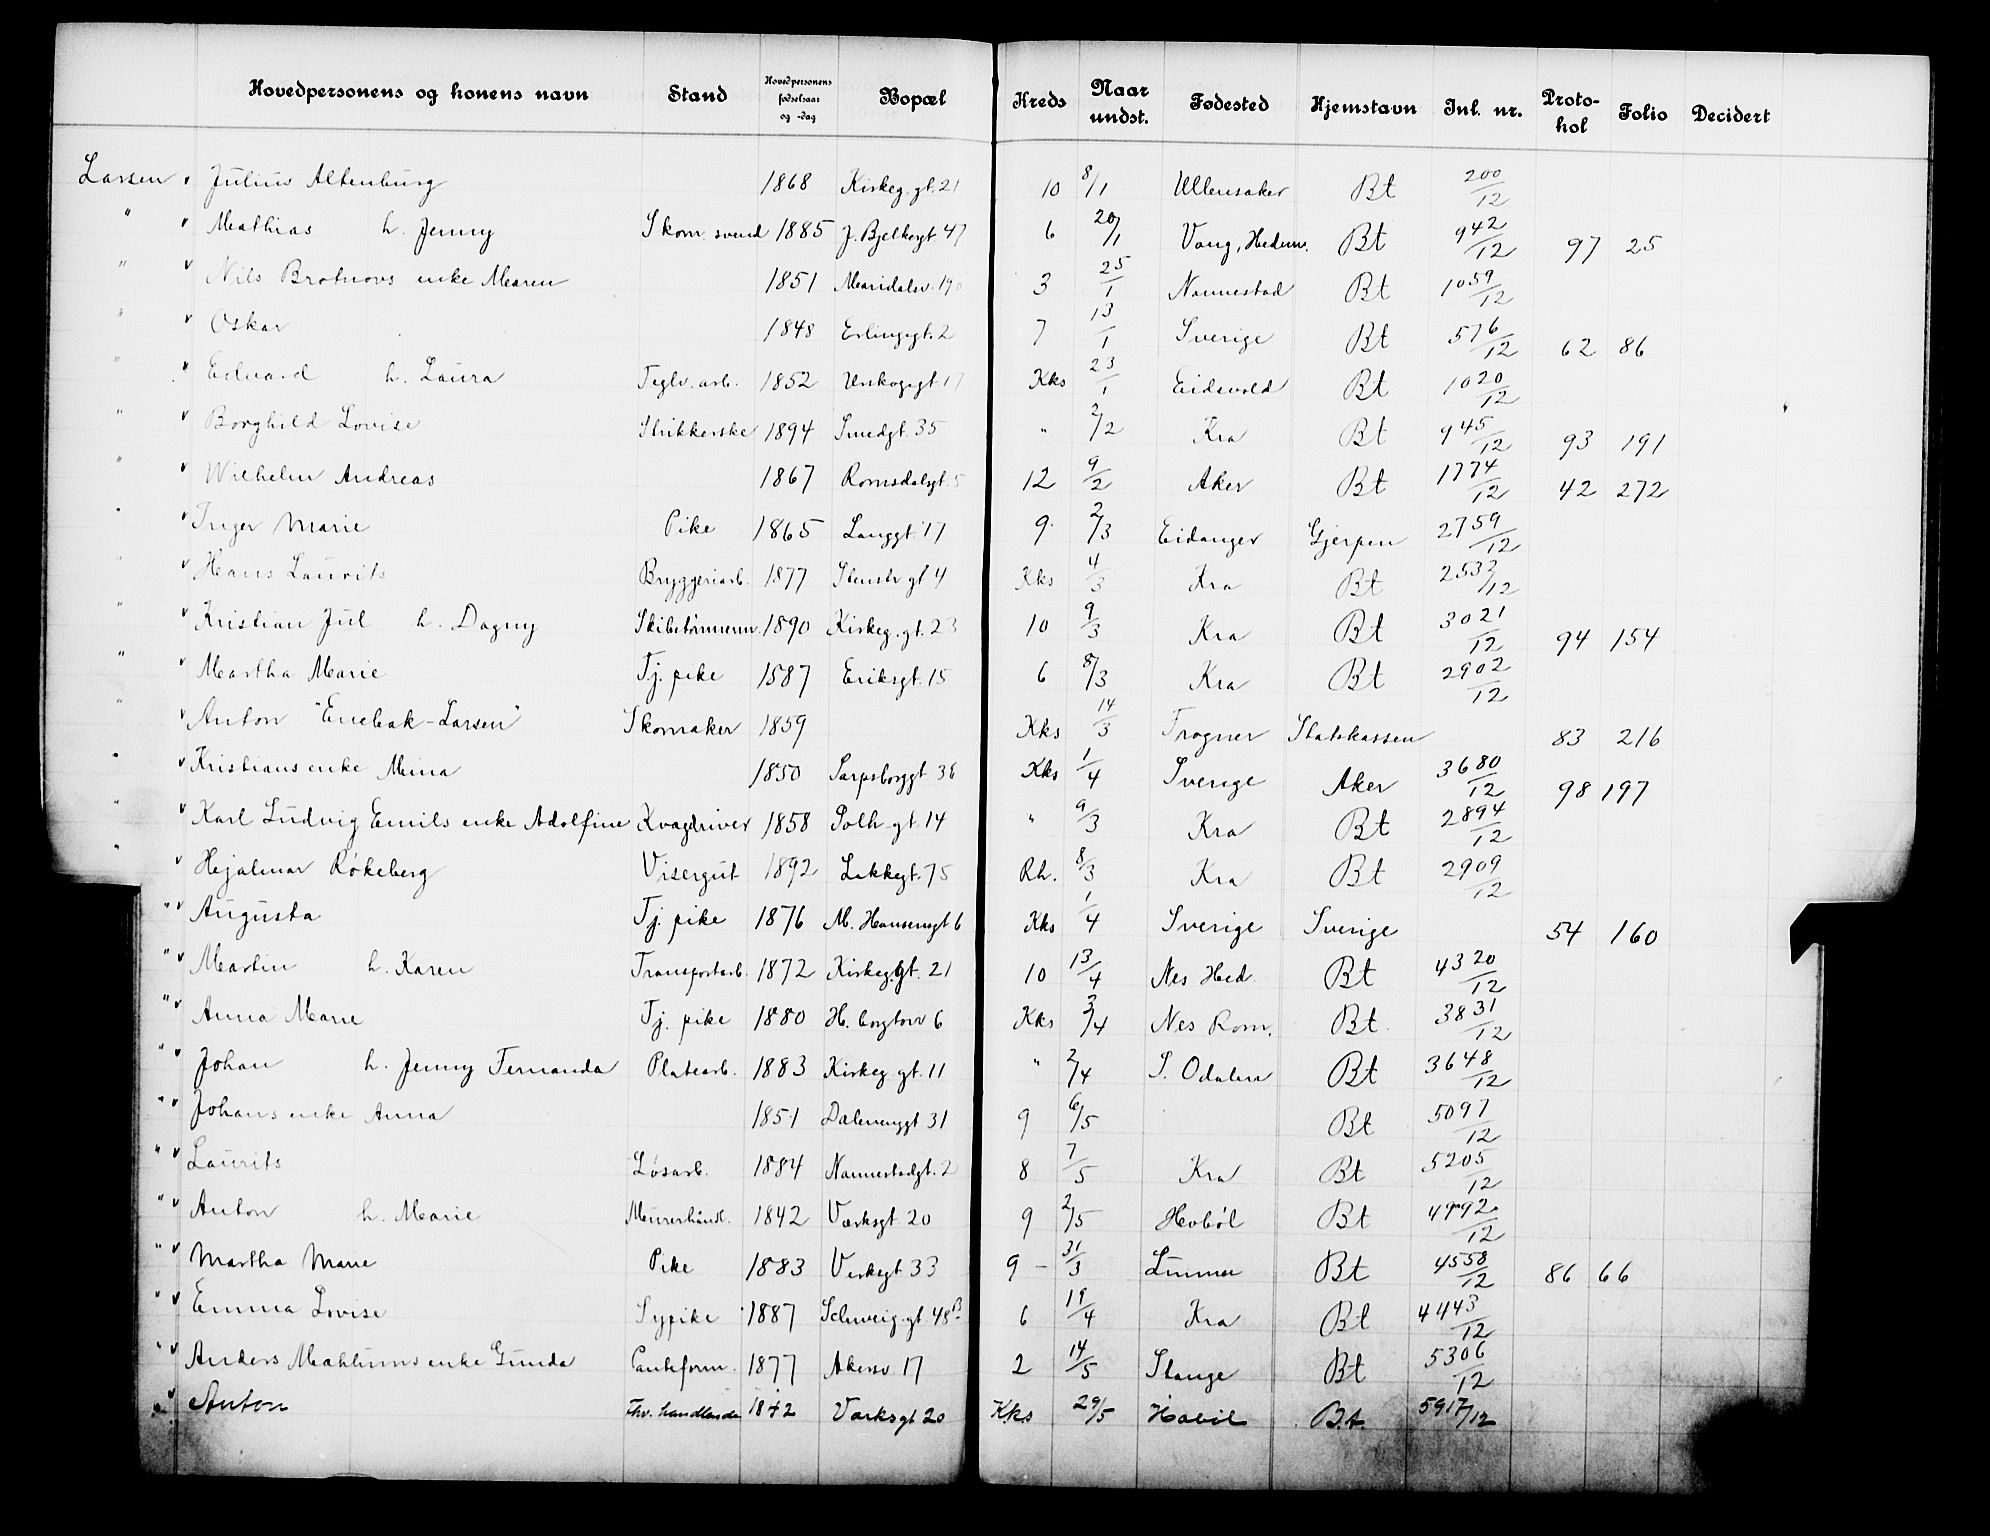 Hovedpersonens og konens navn Stand Hovedpersonens fødselsaar og -dag Bopæl Kreds Naar undst. Fødested Hjemstavn Inl. nr. Protokol Folio Decidert
Larsen Julius Altenburg 1868 Kirkeg. gt. 21 10 8/1 Ullensaker Bt 200/12
" Mathias h. Jenny Skom. svend 1885 J. Bjelkesgt 47 6 20/1 Vang, Hedem. Bt 942/12 97 25
" Nils Brotnovs enke Maren 1851 Maridalsv. 190 3 25/1 Nannestad Bt 1059/12
" Oskar 1848 Erlingsgt. 2 7 13/1 Sverige Bt 576/12 62 86
" Edvard h. Laura Teglv. arb. 1852 Urskogsgt. 17 Kks 23/1 Eidsvold Bt 1020/12
" Borghild Lovise Strikkerske 1894 Smedgt. 35 " 2/2 Kra Bt 945/12 93 191
" Wilhelm Andreas 1867 Romsdalsgt. 5 12 9/2 Aker Bt 1774/12 42 272
" Inger Marie Pike 1865 Langgt. 17 9 2/3 Eidanger Gjerpen 2759/12
" Hans Laurits Bryggeriarb. 1877 Stenstr gt 4 Kks 4/3 Kra Bt 2533/12
" Kristian Jul h. Dagny Skibstømmerm. 1890 Kirkeg. gt. 23 10 9/3 Kra Bt 3021/12 94 154
" Martha Marie Tj. pike 1887 Eriksgt. 15 6 8/3 Kra Bt 2902/12
" Anton "Enebak-Larsen" Skomaker 1859 Kks 14/3 Frogner Statskassen 83 216
" Kristians enke Mina 1850 Sarpsborggt 36 Kks 1/4 Sverige Aker 3680/12 98 197
" Karl Ludvig Emils enke Adolfine Kvægdriver 1858 Solh. gt. 14 " 9/3 Kra Bt 2894/12
" Hjalmar Røkeberg Visergut 1892 Lakkegt. 75 Rh. 8/3 Kra Bt 2909/12
" Augusta Tj. pike 1876 M. Hansensgt 6 Kks 1/4 Sverige Sverige 54 160
" Martin h. Karen Transportarb. 1872 Kirkeg. gt. 21 10 13/4 Nes Hed. Bt 4320/12
" Anna Marie Tj. pike 1880 H. borgtorv 6 Kks 3/4 Nes Rom. Bt 3831/12
" Johan h. Jenny Fernanda Platearb. 1883 Kirkeg. gt. 11 " 2/4 S. Odalen Bt 3648/12
" Johans enke Anna 1851 Dælenenggt 31 9 6/5 Bt 5097/12
" Laurits Løsarb. 1884 Nannestadgt. 2 8 7/5 Kra Bt 5205/12
" Anton h. Marie Murerhånd. 1842 Værksgt 20 9 2/5 Hobøl Bt 4992/12
" Martha Marie Pike 1883 Verksgt 33 9 - 31/3 Lunner Bt 4558/12 86 66
" Emma Lovise Sypike 1887 Schweig. gt 48 B 6 19/4 Kra Bt 4443/12
" Anders Mahlums enke Gunda 1877 Akersv 17 2 14/5 Stange Bt 5306/12
" Anton Thv. handlende 1842 Værksgt 20 Kks 29/5 Hobøl Bt. 5917/12